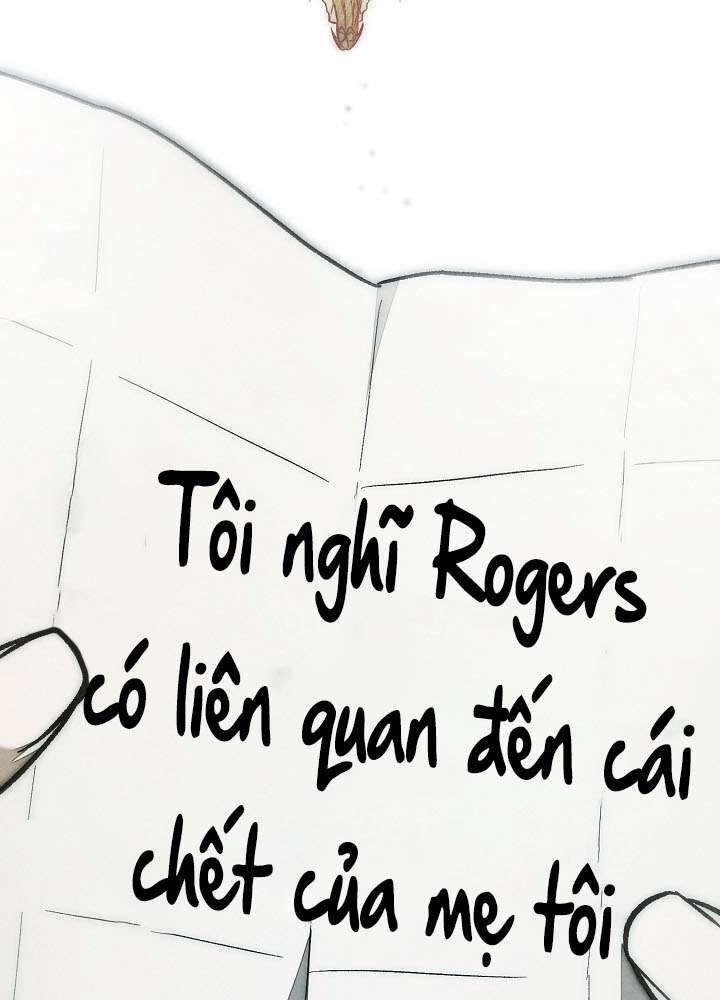 Tôi nghĩ Rogers
có liên quan đến cái
chết của mẹ tôi